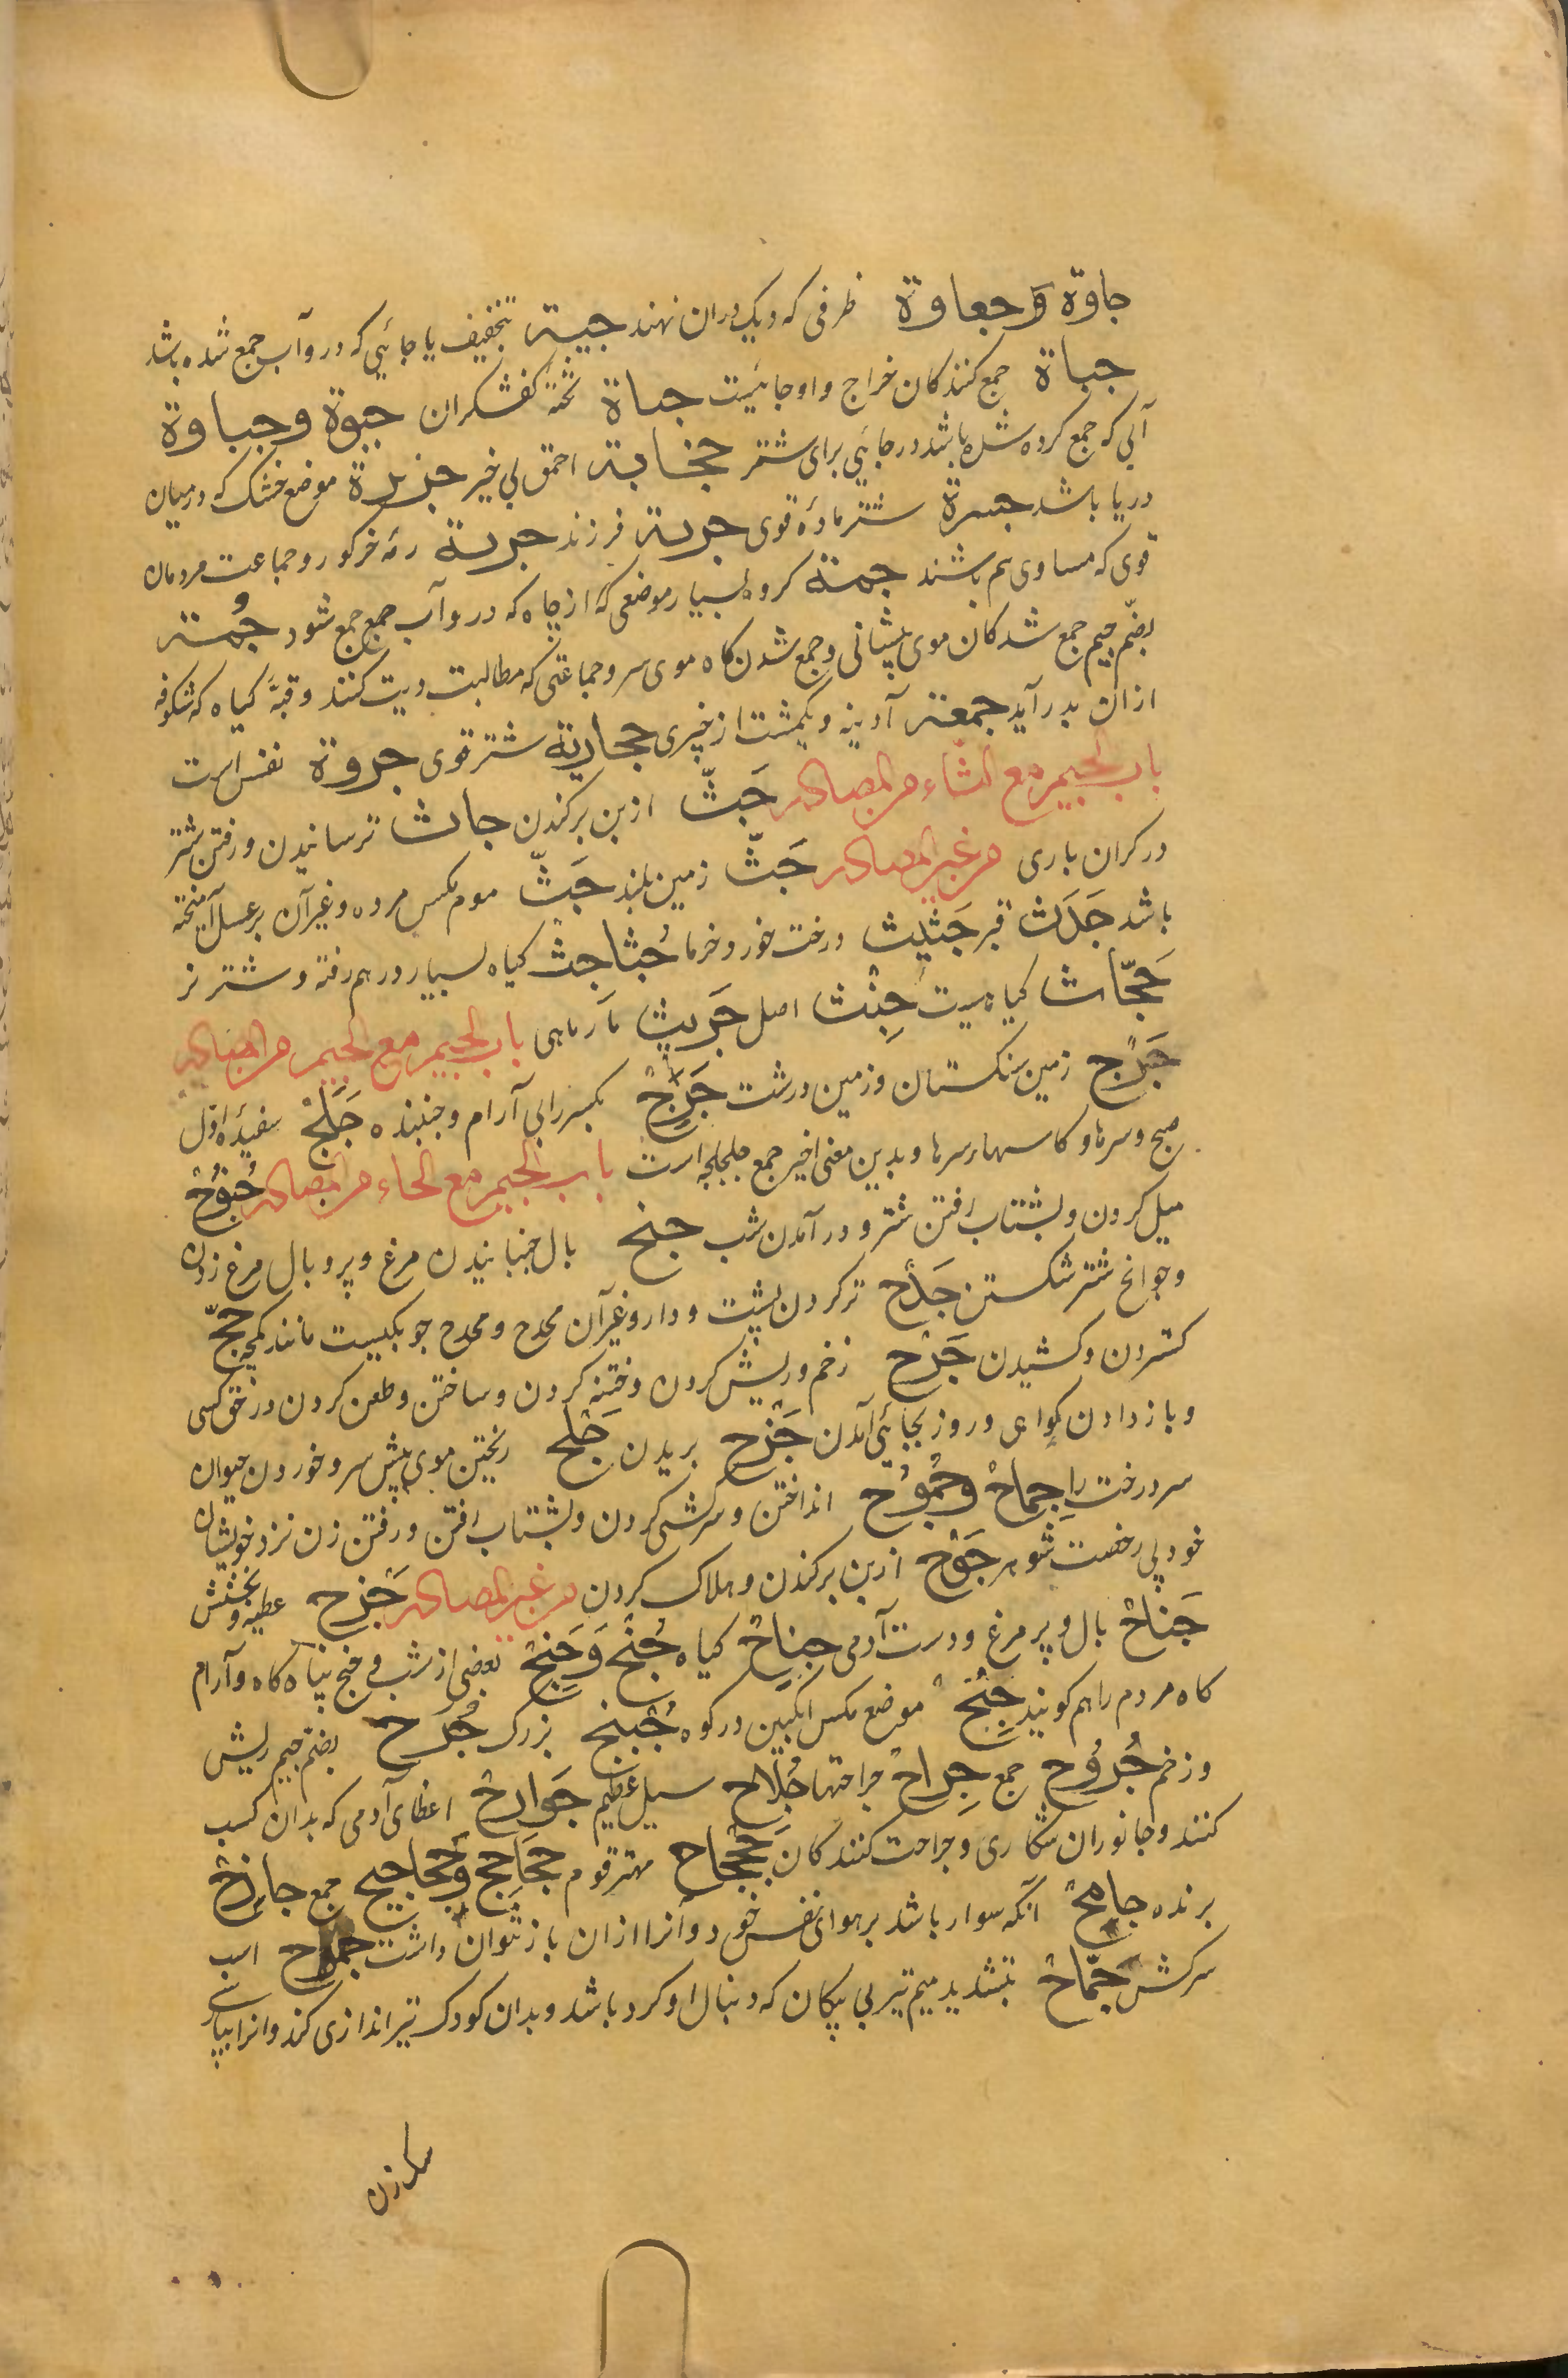 جاوة وَجعاوة ظرفی که دیک دران نهند جیة بتخفیف یا جائیی که درو آب جمع شده باشد
جباة جمع کنندکان خراج و او جائیست جباة تختهٔ کفشکران جبوة وجباوة
آبی که جمع کرده شده باشد در جائیی برای شتر جخابة احمق بی خیر جزیرة موضع خشک که درمیان
دریا باشد جسرة شتر مادهٔ قوی جربة فرزند جربة رمهٔ خرکور وجماعت مردمان
قوی که مساوی هم باشند جمة کروه بسیار موضعی که از چاه که درو آب جمع جمع شود جُمة
بضمّ جیم جمع شدکان موی پیشانی وجمع شدن کاه موی سر وجماعتی که مطالبت دیت کنند وقبهٔ کیاه که شکوفه
ازان بدر آید جمعة آدینه ویکمشت از چیزی جحادیة شتر قوی جروة نفس است
باب الجیم مع الثاء من المصادر جَثّ از بن برکندن جاث ترسانیدن ورفتن شتر
در کران باری من غیر المصادر جَثّ زمین بلند جَثّ موم مکس مرده وغیر آن بر عسل آمیخته
باشد جَدَث قبر جَثیث درخت خورد خرما جُثاجث کیاه بسیار درهم رفته وشتر نر
جَجّاث کیاهیست جِنْث اصل جَریث مار ماهی باب الجیم مع الجیم من المصادر
جَرْج زمین سنکستان وزمین درشت جَرِجْ بکسر رابی آرام وجنبنده جَلَجْ سفیدهٔ اوّل
صبح وسرها وکاسهاء سرها وبدین معنی اخیر جمع جلجلجه است باب الجیم مع الحاء من المصادر جُنُوْحْ
میل کردن وبشتاب رفتن شتر ودر آمدن شب جنح بال جنبانیدن مرغ وپر وبال مرغ زدن
وجوانح شتر شکستن جَدْح تر کردن پشت ودارو وغیر آن مجدح ومجدح جوبکیست مانند کمچه جحّ
کستردن وکشیدن جَرْح زخم وریش کردن وختنه کردن وساختن وطعن کردن در حق کسی
وباز دادن کواهی وروز بجائیی آمدن جَزْح بریدن جَلْح ریختن موی پیش سر وخوردن حیوان
سر درخت را جِماحْ وجُمُوْح انداختن وسرکشی کردن وبشتاب رفتن ورفتن زن نزد خویشان
خود بی رخصت شوهر جَوْح از بن برکندن وهلاک کردن من غیر المصادر جَزْح عطیه وبخشش
جَناحْ بال وپر مرغ ودست آدمی جِناحْ کیاه جُنْح وَجِنْحْ بعضی از شب وجنح پناه کاه وآرام
کاه مردم را هم کویند جِبْحْ موضع مکس انکبین در کوه جُبْح بزرک جُرْح بضم جیم ریش
وزخم جُرُوْح جمع جِراحْ جراحتها جُلاح سیل عظیم جَوارِحْ اعضای آدمی که بدان کسب
کنند وجانوران شکاری وجراحت کنندکان جَحْجاح مهتر قوم جَحَاجِح وَجَحاجیح جمع جازِحْ
برنده جامِحْ آنکه سوار باشد بر هوای نفس خود وآنرا ازان باز نتوان داشت جموح اسب
سرکش جَمّاحْ بتشدید میم تیر بی پیکان که دنبال او کرد باشد وبدان کودک تیر اندازی کند وانرا بپارسی